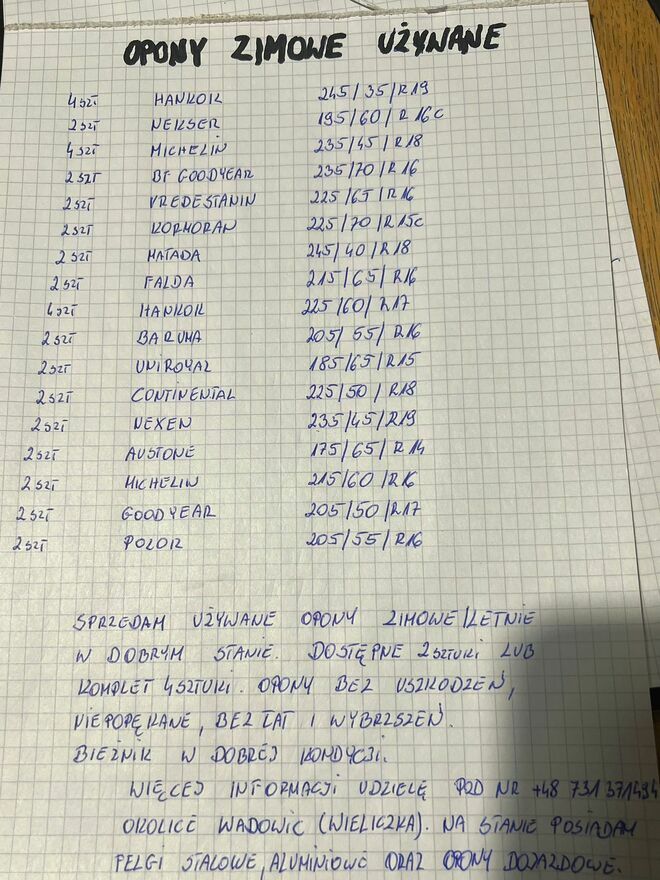 OPONY ZIMOWE UŻYWANE
4 SZT HANKOK 245/35/R19
2 SZT NEKSER 195/60/R16C
4 SZT MICHELIN 235/45/R18
2 SZT BF GOODYEAR 235/70/R16
2 SZT VREDESTANIN 225/65/R16
2 SZT KORMORAN 225/70/R15C
2 SZT MATADA 245/40/R18
2 SZT FALDA 215/65/R16
4 SZT HANKOK 225/60/R17
2 SZT BARUMA 205/55/R16
2 SZT UNIROYAL 185/65/R15
2 SZT CONTINENTAL 225/50/R18
2 SZT NEXEN 235/45/R19
2 SZT AUSTONE 175/65/R14
2 SZT MICHELIN 215/60/R16
2 SZT GOODYEAR 205/50/R17
2 SZT POLOR 205/55/R16
SPRZEDAM UŻYWANE OPONY ZIMOWE/LETNIE
W DOBRYM STANIE. DOSTĘPNE 2 SZTUKI LUB
KOMPLET 4 SZTUKI. OPONY BEZ USZKODZEŃ,
NIEPOPĘKANE, BEZ ŁAT I WYBRZSZEŃ.
BIEŻNIK W DOBREJ KONDYCJI.
WIĘCEJ INFORMACJI UDZIELĘ POD NR +48 731 371494
OKOLICE WADOWIC (WIELICZKA). NA STANIE POSIADAM
FELGI STALOWE, ALUMINIOWE ORAZ OPONY DOJAZDOWE.